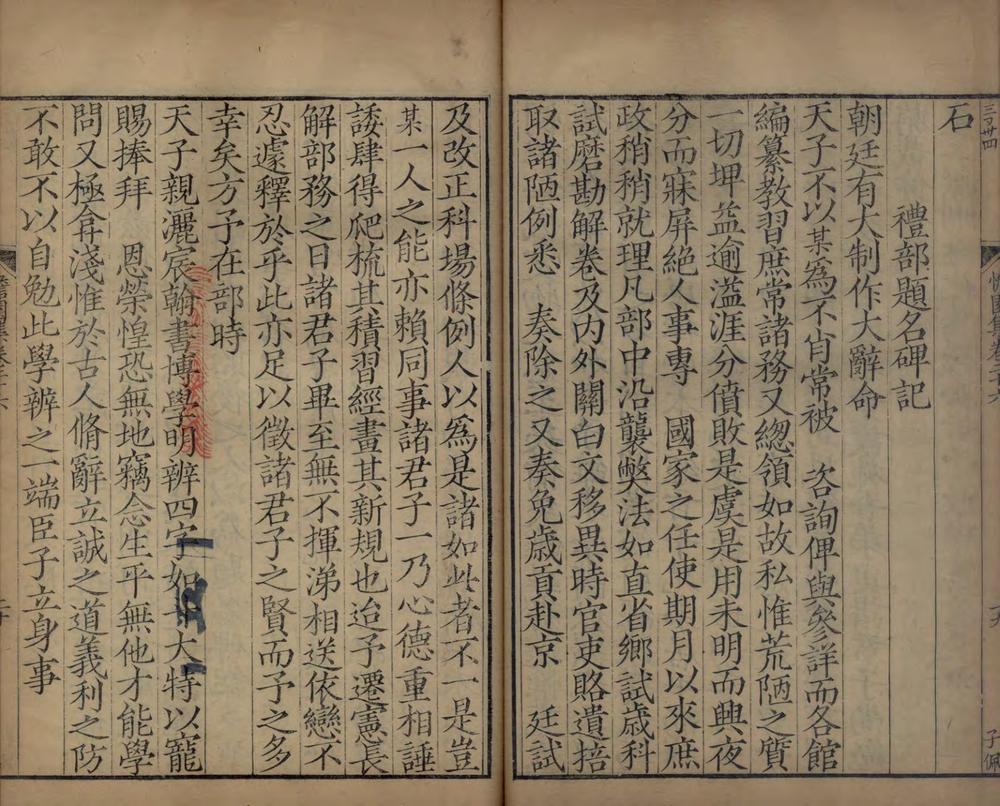 石
禮部題名碑記
朝廷有大制作大辭命
天子不以某為不肖常被　咨詢俾與參詳而各館
編纂教習庶常諸務又總領如故私惟荒陋之質
一切坤益逾溢涯分僨敗是虞是用未明而興夜
分而寐屏絕人事專　國家之任使期月以來庶
政稍稍就理凡部中沿襲獘法如直省鄉試歲科
試磨勘解卷及內外關白文移異時官吏賂遺掊
取諸陋例悉　奏除之又奏免歲貢赴京　廷試
及改正科場條例人以為是諸如此者不一是豈
某一人之能亦賴同事諸君子一乃心德重相諈
諉肆得爬梳其積習經畫其新規也迨予遷憲長
解部務之日諸君子畢至無不揮涕相送依戀不
忍遽釋於乎此亦足以徵諸君子之賢而予之多
幸矣方予在部時
天子親灑宸翰書博學明辨四字如斗大特以寵
賜捧拜　恩榮惶恐無地竊念生平無他才能學
問又極弇淺惟於古人脩辭立誠之道義利之防
不敢不以自勉此學辨之一端臣子立身事